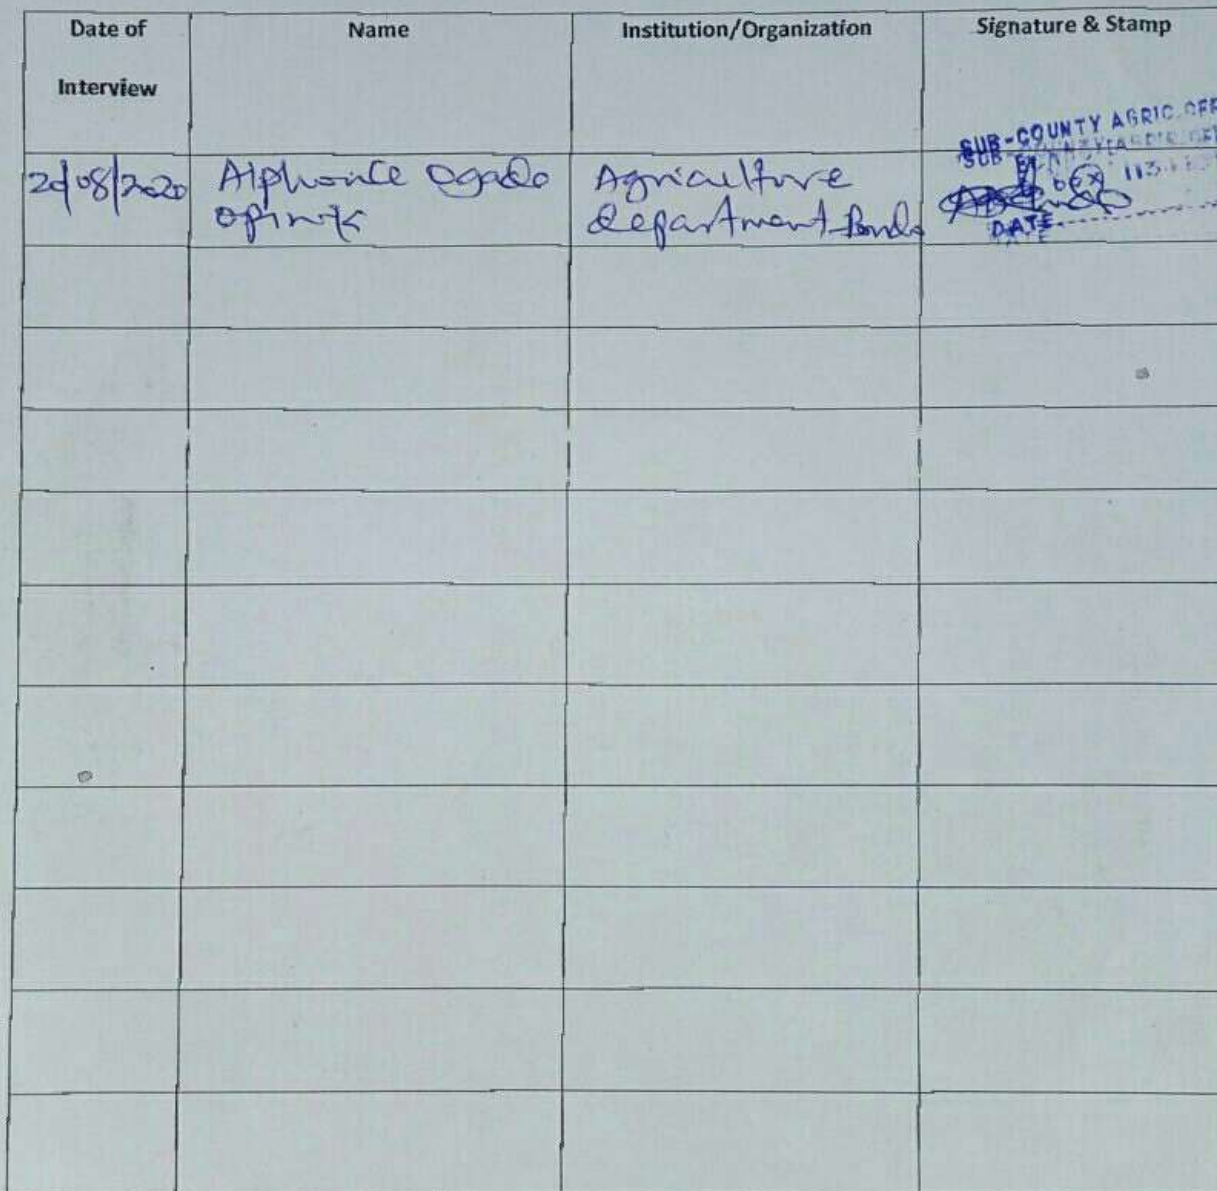 Date of
Interview
Name
Institution/Organization
Signature & Stamp
/08/2020
Alphonce Ogado
Agriculture
department Bondo
SUB-COUNTY AGRIC.
BOX 113
DATE